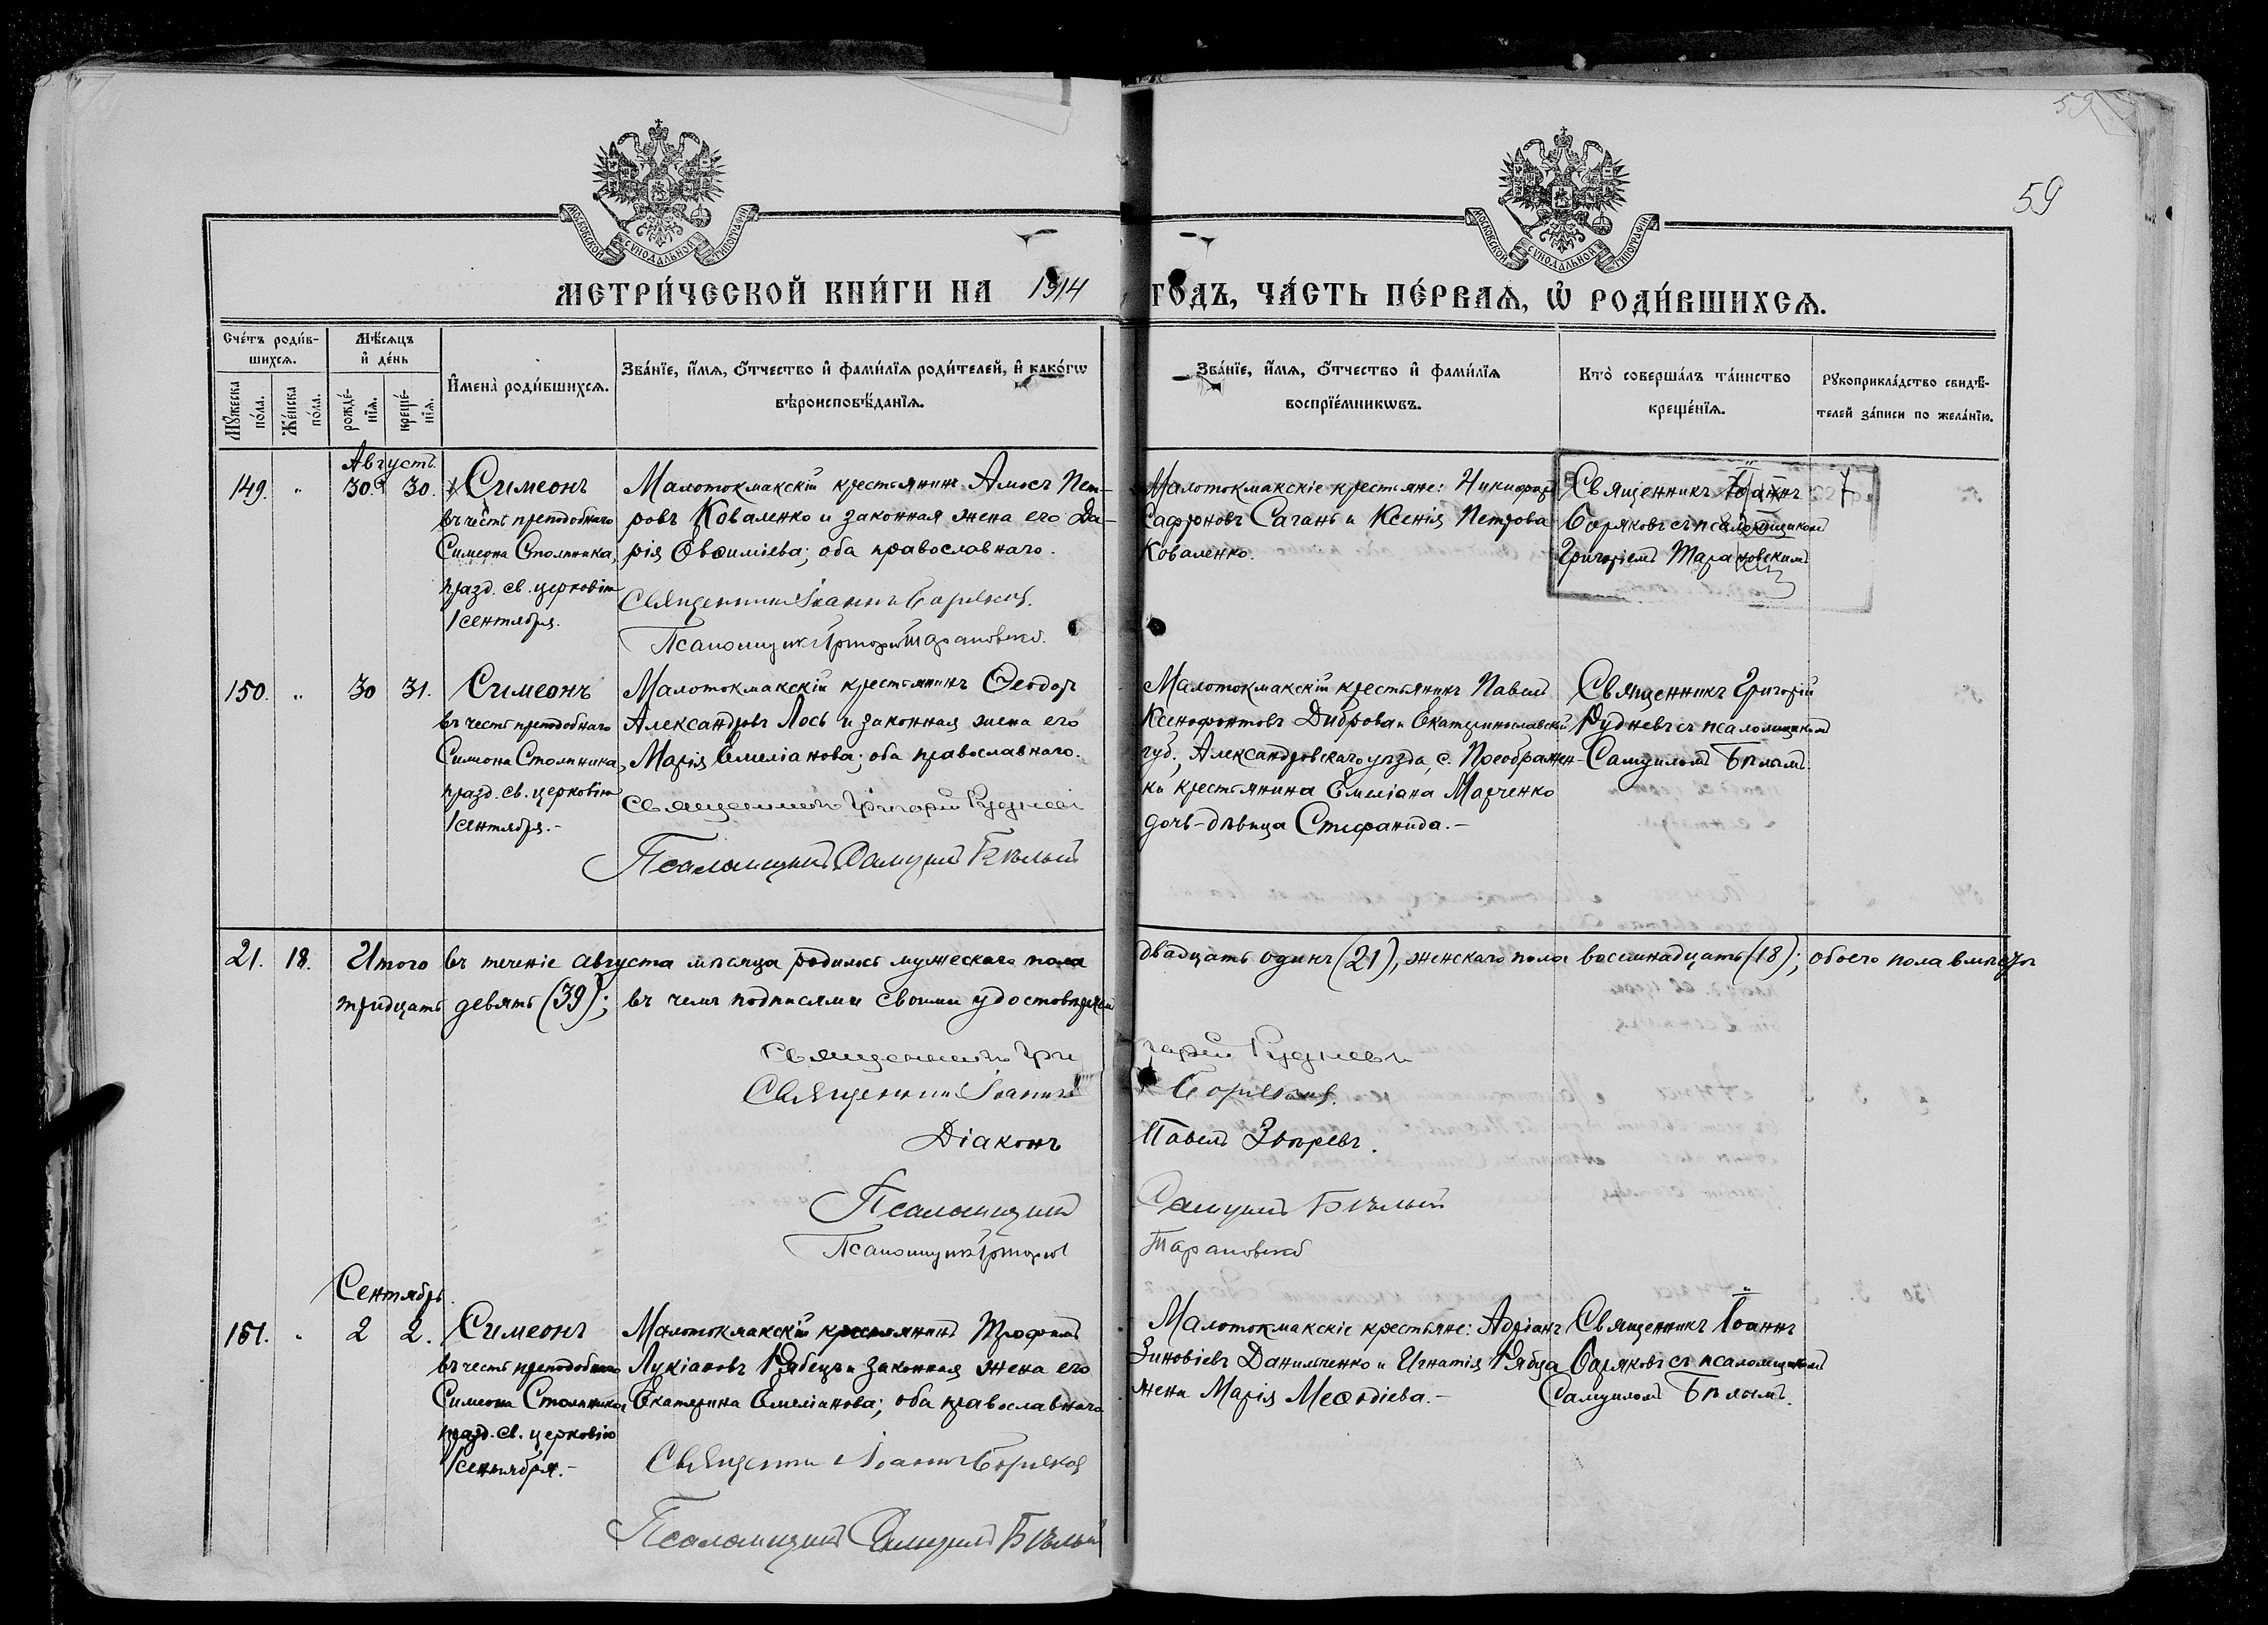 59
59
МОСКОВСКОЙ СѴНОДАЛЬНОЙ ТИПОГРАФІИ
МОСКОВСКОЙ СѴНОДАЛЬНОЙ ТИПОГРАФІИ
МЕТРИ́ЧЕСКОЙ КНИ́ГИ НА 1914 ГО́ДЪ, ЧА́СТЬ ПЕ́РВАѦ, Ѽ РОДИ́ВШИХСѦ.
Сче́тъ роди́в-
шихсѧ.
Мꙋ́жеска
по́ла.
Же́нска
по́ла.
Мѣ́сѧцъ
и҆ де́нь
рожде́-
нїѧ.
креще́-
нїѧ.
И҆мена̀ роди́вшихсѧ.
Зва́нїе, и҆́мѧ, ѻ҆́тчество и҆ фами́лїѧ роди́телей, и҆ како́гѡ
вѣроисповѣ́данїѧ.
Зва́нїе, и҆́мѧ, ѻ҆́тчество и҆ фами́лїѧ
воспрїе́мникѡвъ.
Кто̀ соверша́лъ та́инство
креще́нїѧ.
Рꙋкоприкла́дство свидѣ́-
телей за́писи по жела́нїю.
Августъ
149. " 30. 30. Симеонъ
въ честь преподобнаго
Симеона Столпника,
празд. св. церковію
1 сентября.
Малотокмакскій крестьянинъ Амосъ Пет-
ровъ Коваленко и законная жена его Да-
рія Евѳиміева; оба православнаго.
Священникъ Іоаннъ Боряковъ.
Псаломщикъ Григорій Тарановскій.
Малотокмакскіе крестьяне: Никифоръ
Сафроновъ Сагань и Ксенія Петрова
Коваленко.
Священникъ Іоаннъ
Боряковъ съ псаломщикомъ
Григоріемъ Тарановскимъ
150. " 30 31. Симеонъ
въ честь преподобнаго
Симеона Столпника,
празд. св. церковію
1 сентября.-
Малотокмакскій крестьянинъ Ѳеодоръ
Александровъ Лось и законная жена его
Марія Емеліанова; оба православнаго.
Священникъ Григорій Рудневъ
Псаломщикъ Самуилъ Бѣлый
Малотокмакскій крестьянинъ Павелъ
Ксенофонтовъ Диброва и Екатеринославской
губ., Александровскаго уѣзда, с. Преображен-
ки крестьянина Емеліана Марченко
дочь-дѣвица Стефанида.-
Священникъ Григорій
Рудневъ съ псаломщикомъ
Самуиломъ Бѣлымъ.
21. 18. Итого въ теченіе августа мѣсяца родилось мужескаго пола двадцать одинъ (21), женскаго пола восемнадцать (18); обоего пола вмѣстѣ
тридцать девять (39); въ чемъ подписями своими удостовѣряемъ
Священникъ Григорій Рудневъ
Священникъ Іоаннъ Боряковъ.
Діаконъ Павелъ Звѣревъ.
Псаломщикъ Самуилъ Бѣлый
Псаломщикъ Григорій Тарановскій
Сентябрь.
151. " 2 2. Симеонъ
въ честь преподобнаго
Симеона Столпника,
празд. св. церковію
1 сентября.-
Малотокмакскій крестьянинъ Трофимъ
Лукіановъ Рябецъ и законная жена его
Екатерина Емеліанова; оба православнаго
Священникъ Іоаннъ Боряковъ
Псаломщикъ Самуилъ Бѣлый
Малотокмакскіе крестьяне: Адріанъ
Зиновіевъ Данильченко и Игнатія Рябца
жена Марія Меѳодіева.-
Священникъ Іоаннъ
Боряковъ съ псаломщикомъ
Самуиломъ Бѣлымъ.